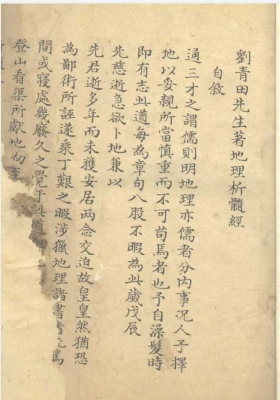 劉青田先生著地理析髓經
自敘
通三才之謂儒則明地理亦儒者分內事況人子擇
地以妥親所當慎重而不可苟焉者也予自澡髮時
即有志此道每為章句八股不暇為此歲戊辰
先慈逝急欲卜地兼以
先君逝多年而未獲安居両念交迫故皇皇然猶恐
為鄙術所誑遂乘丁艱之暇涉獵地理諸書
間或寢處幾廢久之覺于此道
登山看渠所獻地勿